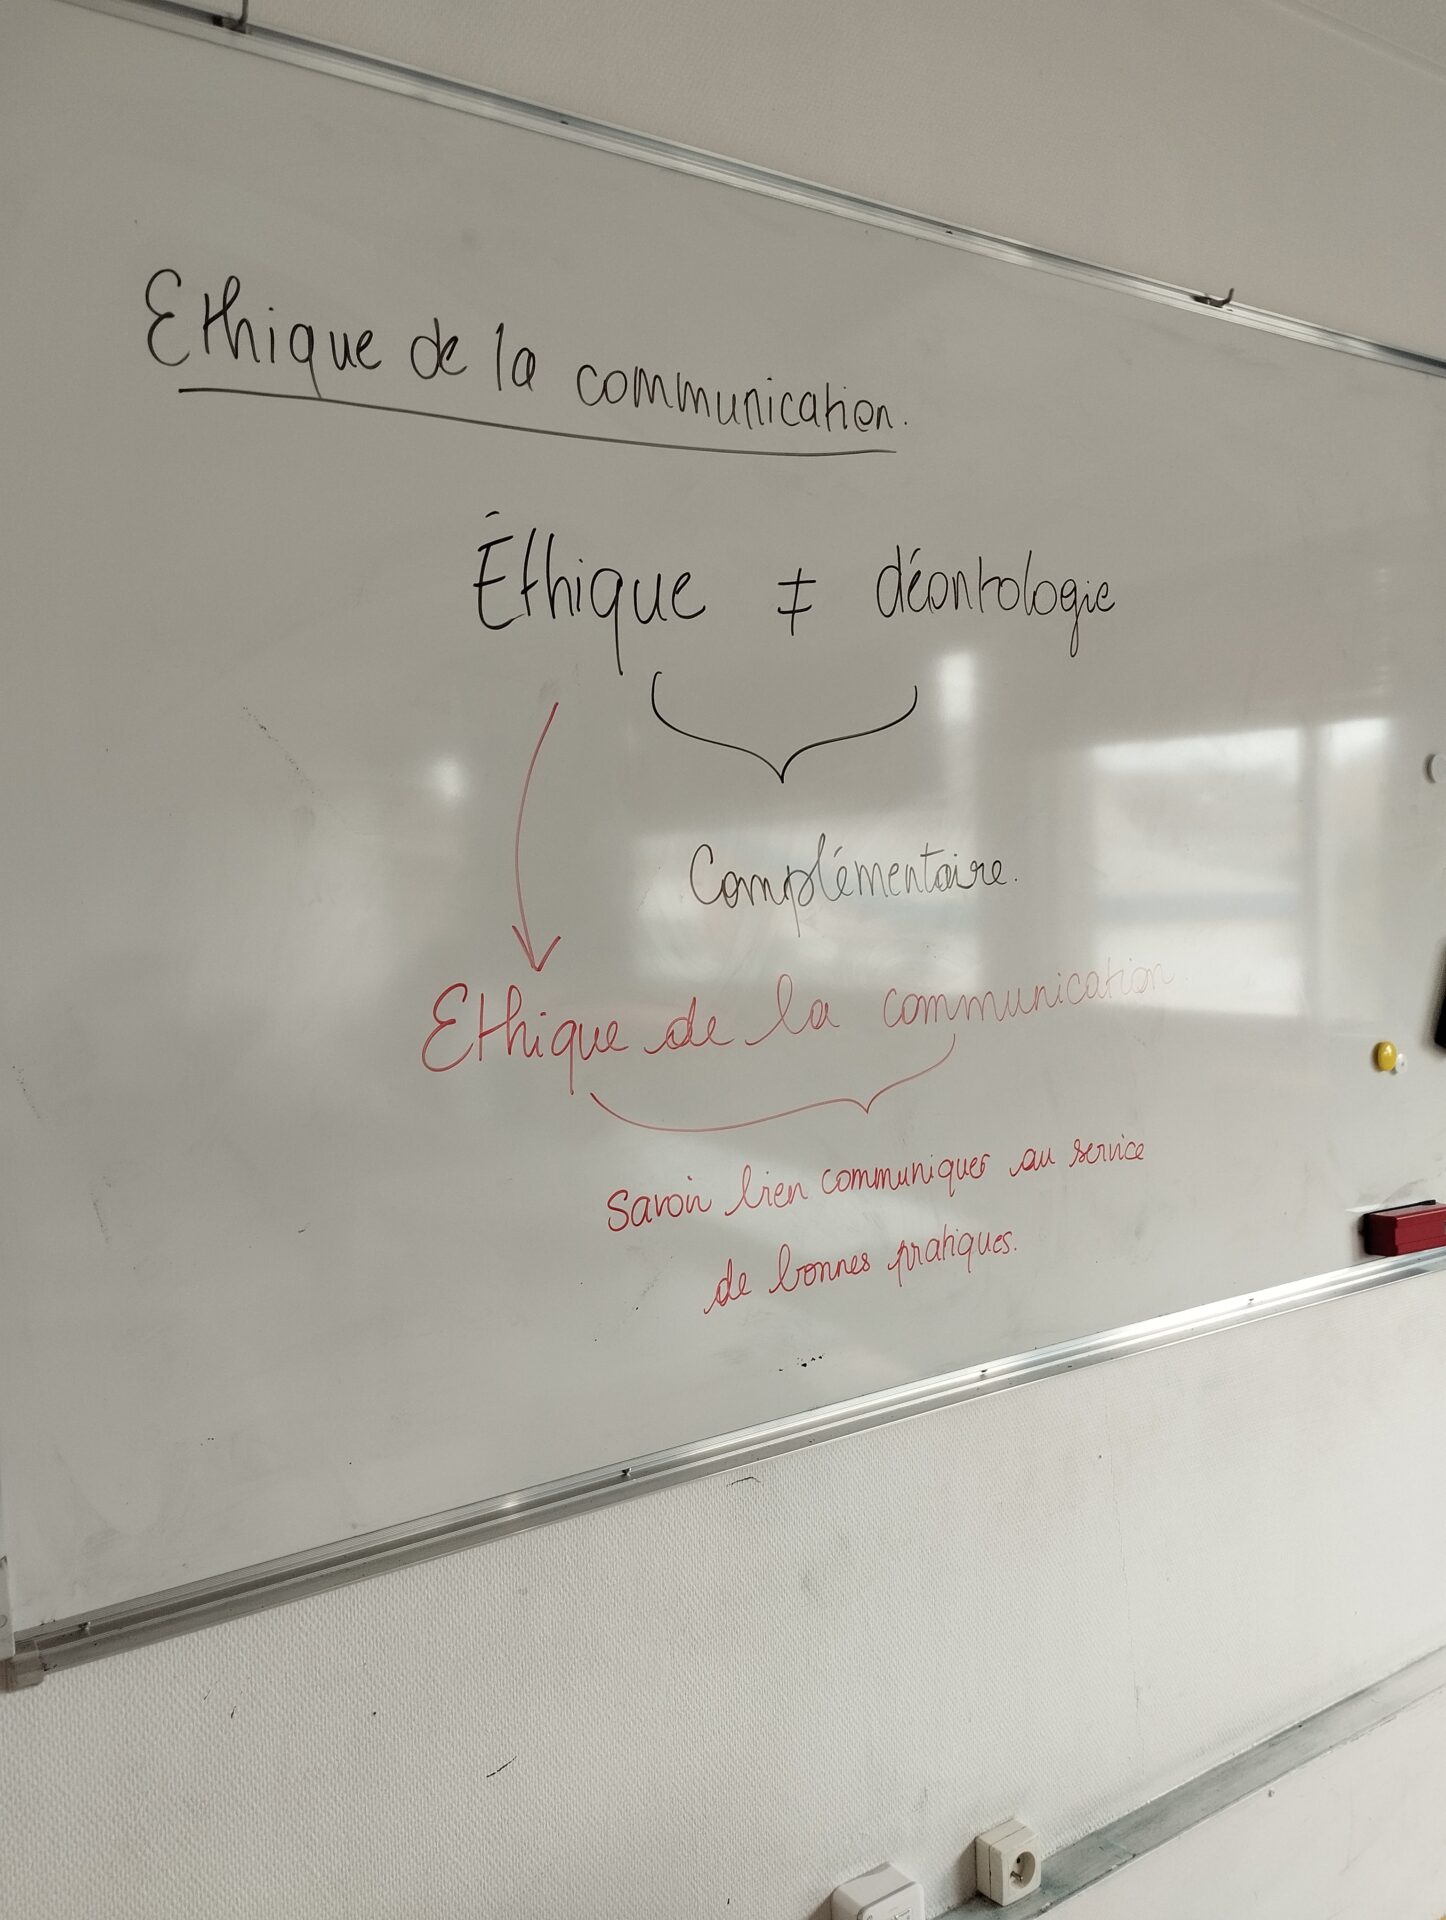 Ethique de la communication.
Éthique ≠ déontologie
Complémentaire.
Ethique de la communication.
Savoir bien communiquer au service
de bonnes pratiques.